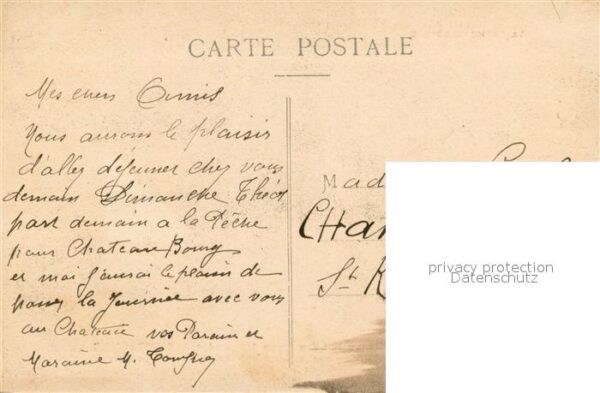 CARTE POSTALE
Mes chers Amis
Nous aurons le plaisir
d'aller déjeuner chez vous
demain Dimanche Théo
part demain a la Pêche
pour Chateau Bourg
et moi j'aurai le plaisir de
passer la Journée avec vous
au Chateau vos Parain et
Maraine M.
Mad
CHA
St
privacy protection
Datenschutz